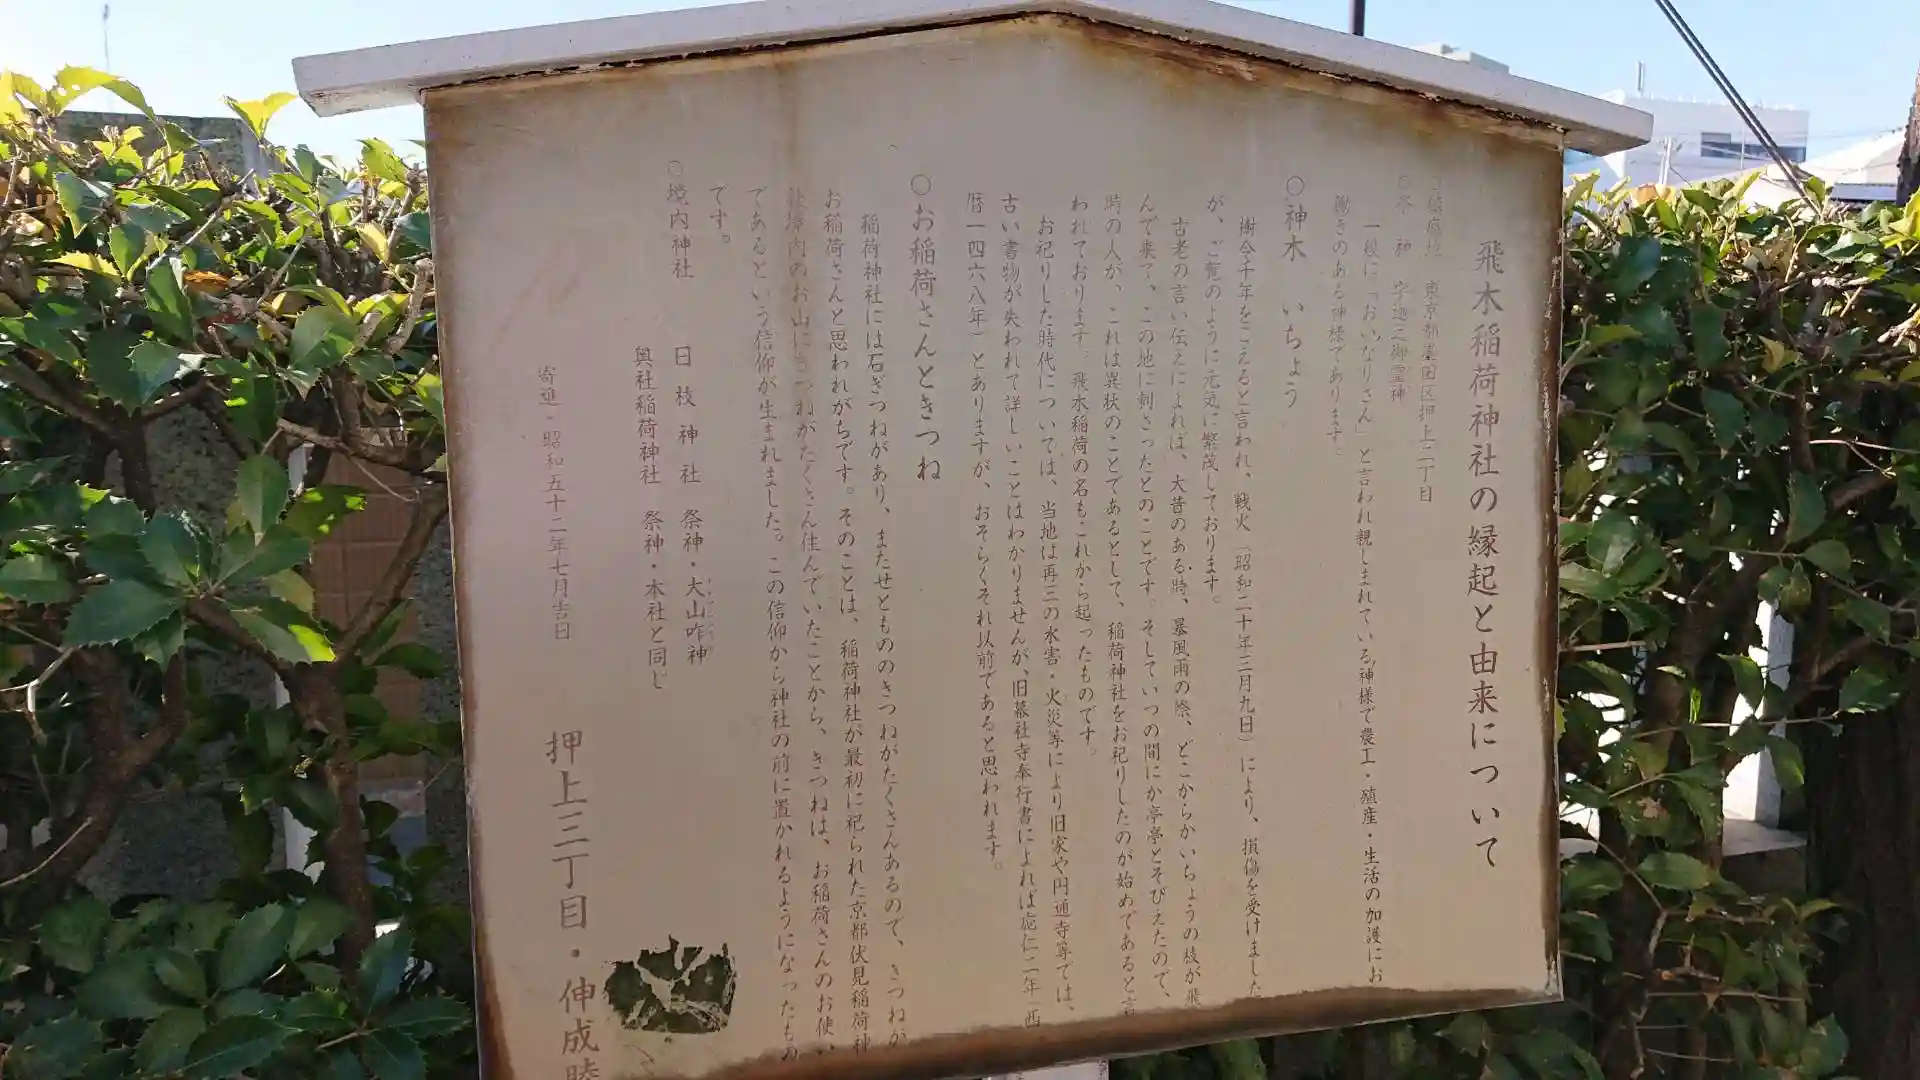 飛木稲荷神社の縁起と由来について
鎮座地 東京都墨田区押上二丁目
祭神 宇迦之御霊神
一般に「おいなりさん」と言われ親しまれている神様で農工・殖産・生活の加護にお
働きのある神様であります。
○神木 いちょう
樹令千年をこえると言われ、戦火(昭和二十年三月九日)により、損傷を受けました
が、ご覧のように元気に繁茂しております。
古老の言い伝えによれば、大昔のある時、暴風雨の際、どこからかいちょうの枝が飛
んで来て、この地に刺さったとのことです。そしていつの間にか亭亭とそびえたので、
時の人が、これは異状のことであるとして、稲荷神社をお祀りしたのが始めであると言
われております。飛木稲荷の名もこれから起ったものです。
お祀りした時代については、当地は再三の水害・火災等により旧家や円通寺等では、
古い書物が失われて詳しいことはわかりませんが、旧幕社寺奉行書によれば応仁二年(西
暦一四六八年)とありますが、おそらくそれ以前であると思われます。
○お稲荷さんときつね
稲荷神社には石ぎつねがあり、またせともののきつねがたくさんあるので、きつねが
お稲荷さんと思われがちです。そのことは、稲荷神社が最初に祀られた京都伏見稲荷神
社境内のお山にきつねがたくさん住んでいたことから、きつねは、お稲荷さんのお使い
であるという信仰が生まれました。この信仰から神社の前に置かれるようになったもの
です。
○境内神社 日枝神社 祭神・大山咋神
興社稲荷神社 祭神・本社と同じ
寄進・昭和五十二年七月吉日
押上三丁目・伸成睦